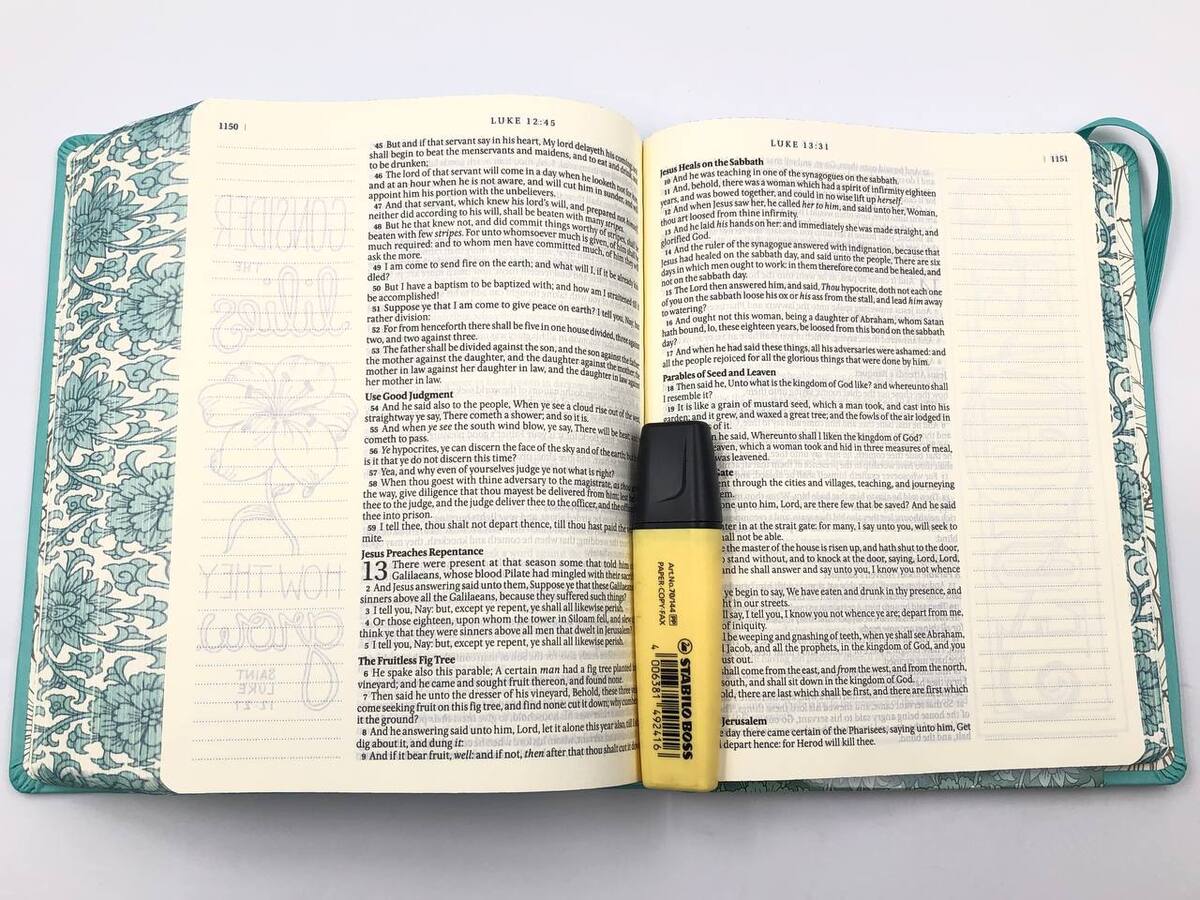 1150
LUKE 12:45
45 And if that servant say in his heart, My lord delayeth his coming;
shall begin to beat the menservants and maidens, and to eat and drink,
to be drunken;
46 The lord of that servant will come in a day when he looketh not for
and at an hour when he is not aware, and will cut him in sunder, and
appoint him his portion with the unbelievers.
47 And that servant, which knew his lord's will, and prepared not himself,
neither did according to his will, shall be beaten with many stripes.
48 But he that knew not, and did commit things worthy of stripes, shall be
beaten with few stripes. For unto whomsoever much is given, of him shall
much required: and to whom men have committed much, of him they
ask the more.
49 I am come to send fire on the earth; and what will I, if it be already
dled?
50 But I have a baptism to be baptized with; and how am I straitened till
be accomplished!
51 Suppose ye that I am come to give peace on earth? I tell you, Nay; but
rather division:
52 For from henceforth there shall be five in one house divided, three against
two, and two against three.
53 The father shall be divided against the son, and the son against the father;
the mother against the daughter, and the daughter against the mother; the
mother in law against her daughter in law, and the daughter in law against
her mother in law.
Use Good Judgment
54 And he said also to the people, When ye see a cloud rise out of the west,
straightway ye say, There cometh a shower; and so it is.
55 And when ye see the south wind blow, ye say, There will be heat;
cometh to pass.
56 Ye hypocrites, ye can discern the face of the sky and of the earth; but
is it that ye do not discern this time?
57 Yea, and why even of yourselves judge ye not what is right?
58 When thou goest with thine adversary to the magistrate, as thou
the way, give diligence that thou mayest be delivered from him; lest
thee to the judge, and the judge deliver thee to the officer, and the officer
thee into prison.
59 I tell thee, thou shalt not depart thence, till thou hast paid the
mite.
Jesus Preaches Repentance
13 There were present at that season some that told him
Galilaeans, whose blood Pilate had mingled with their
2 And Jesus answering said unto them, Suppose ye that these Galilaeans
sinners above all the Galilaeans, because they suffered such things?
3 I tell you, Nay: but, except ye repent, ye shall all likewise perish.
4 Or those eighteen, upon whom the tower in Siloam fell, and slew
think ye that they were sinners above all men that dwelt in Jerusalem?
5 I tell you, Nay: but, except ye repent, ye shall all likewise perish.
The Fruitless Fig Tree
6 He spake also this parable; A certain man had a fig tree planted in
vineyard; and he came and sought fruit thereon, and found none.
7 Then said he unto the dresser of his vineyard, Behold, these three
come seeking fruit on this fig tree, and find none: cut it down; why
it the ground?
8 And he answering said unto him, Lord, let it alone this year also, till I
dig about it, and dung it:
9 And if it bear fruit, well: and if not, then after that thou shalt cut it
CONSIDER
THE
lilies
HOW THEY
grow
SAINT
LUKE
12:27
LUKE 13:31
1151
Jesus Heals on the Sabbath
10 And he was teaching in one of the synagogues on the sabbath.
11 And, behold, there was a woman which had a spirit of infirmity eighteen
years, and was bowed together, and could in no wise lift up herself.
12 And when Jesus saw her, he called her to him, and said unto her, Woman,
thou art loosed from thine infirmity.
13 And he laid his hands on her: and immediately she was made straight, and
glorified God.
14 And the ruler of the synagogue answered with indignation, because that
Jesus had healed on the sabbath day, and said unto the people, There are six
days in which men ought to work: in them therefore come and be healed, and
not on the sabbath day.
15 The Lord then answered him, and said, Thou hypocrite, doth not each one
of you on the sabbath loose his ox or his ass from the stall, and lead him away
to watering?
16 And ought not this woman, being a daughter of Abraham, whom Satan
hath bound, lo, these eighteen years, be loosed from this bond on the sabbath
day?
17 And when he had said these things, all his adversaries were ashamed: and
all the people rejoiced for all the glorious things that were done by him.
Parables of Seed and Leaven
18 Then said he, Unto what is the kingdom of God like? and whereunto shall
I resemble it?
19 It is like a grain of mustard seed, which a man took, and cast into his
garden; and it grew, and waxed a great tree; and the fowls of the air lodged in
of it.
he said, Whereunto shall I liken the kingdom of God?
leaven, which a woman took and hid in three measures of meal,
was leavened.
Gate
nt through the cities and villages, teaching, and journeying
em.
one unto him, Lord, are there few that be saved? And he said
ter in at the strait gate: for many, I say unto you, will seek to
hall not be able.
the master of the house is risen up, and hath shut to the door,
stand without, and to knock at the door, saying, Lord, Lord,
nd he shall answer and say unto you, I know you not whence
ye begin to say, We have eaten and drunk in thy presence, and
ht in our streets.
ll say, I tell you, I know you not whence ye are; depart from me,
of iniquity.
l be weeping and gnashing of teeth, when ye shall see Abraham,
Jacob, and all the prophets, in the kingdom of God, and you
ust out.
hall come from the east, and from the west, and from the north,
south, and shall sit down in the kingdom of God.
old, there are last which shall be first, and there are first which
Jerusalem
day there came certain of the Pharisees, saying unto him, Get
depart hence: for Herod will kill thee.
Art.No.70/144
PAPER-COPY-FAX
STABILO BOSS
4 006381 492416